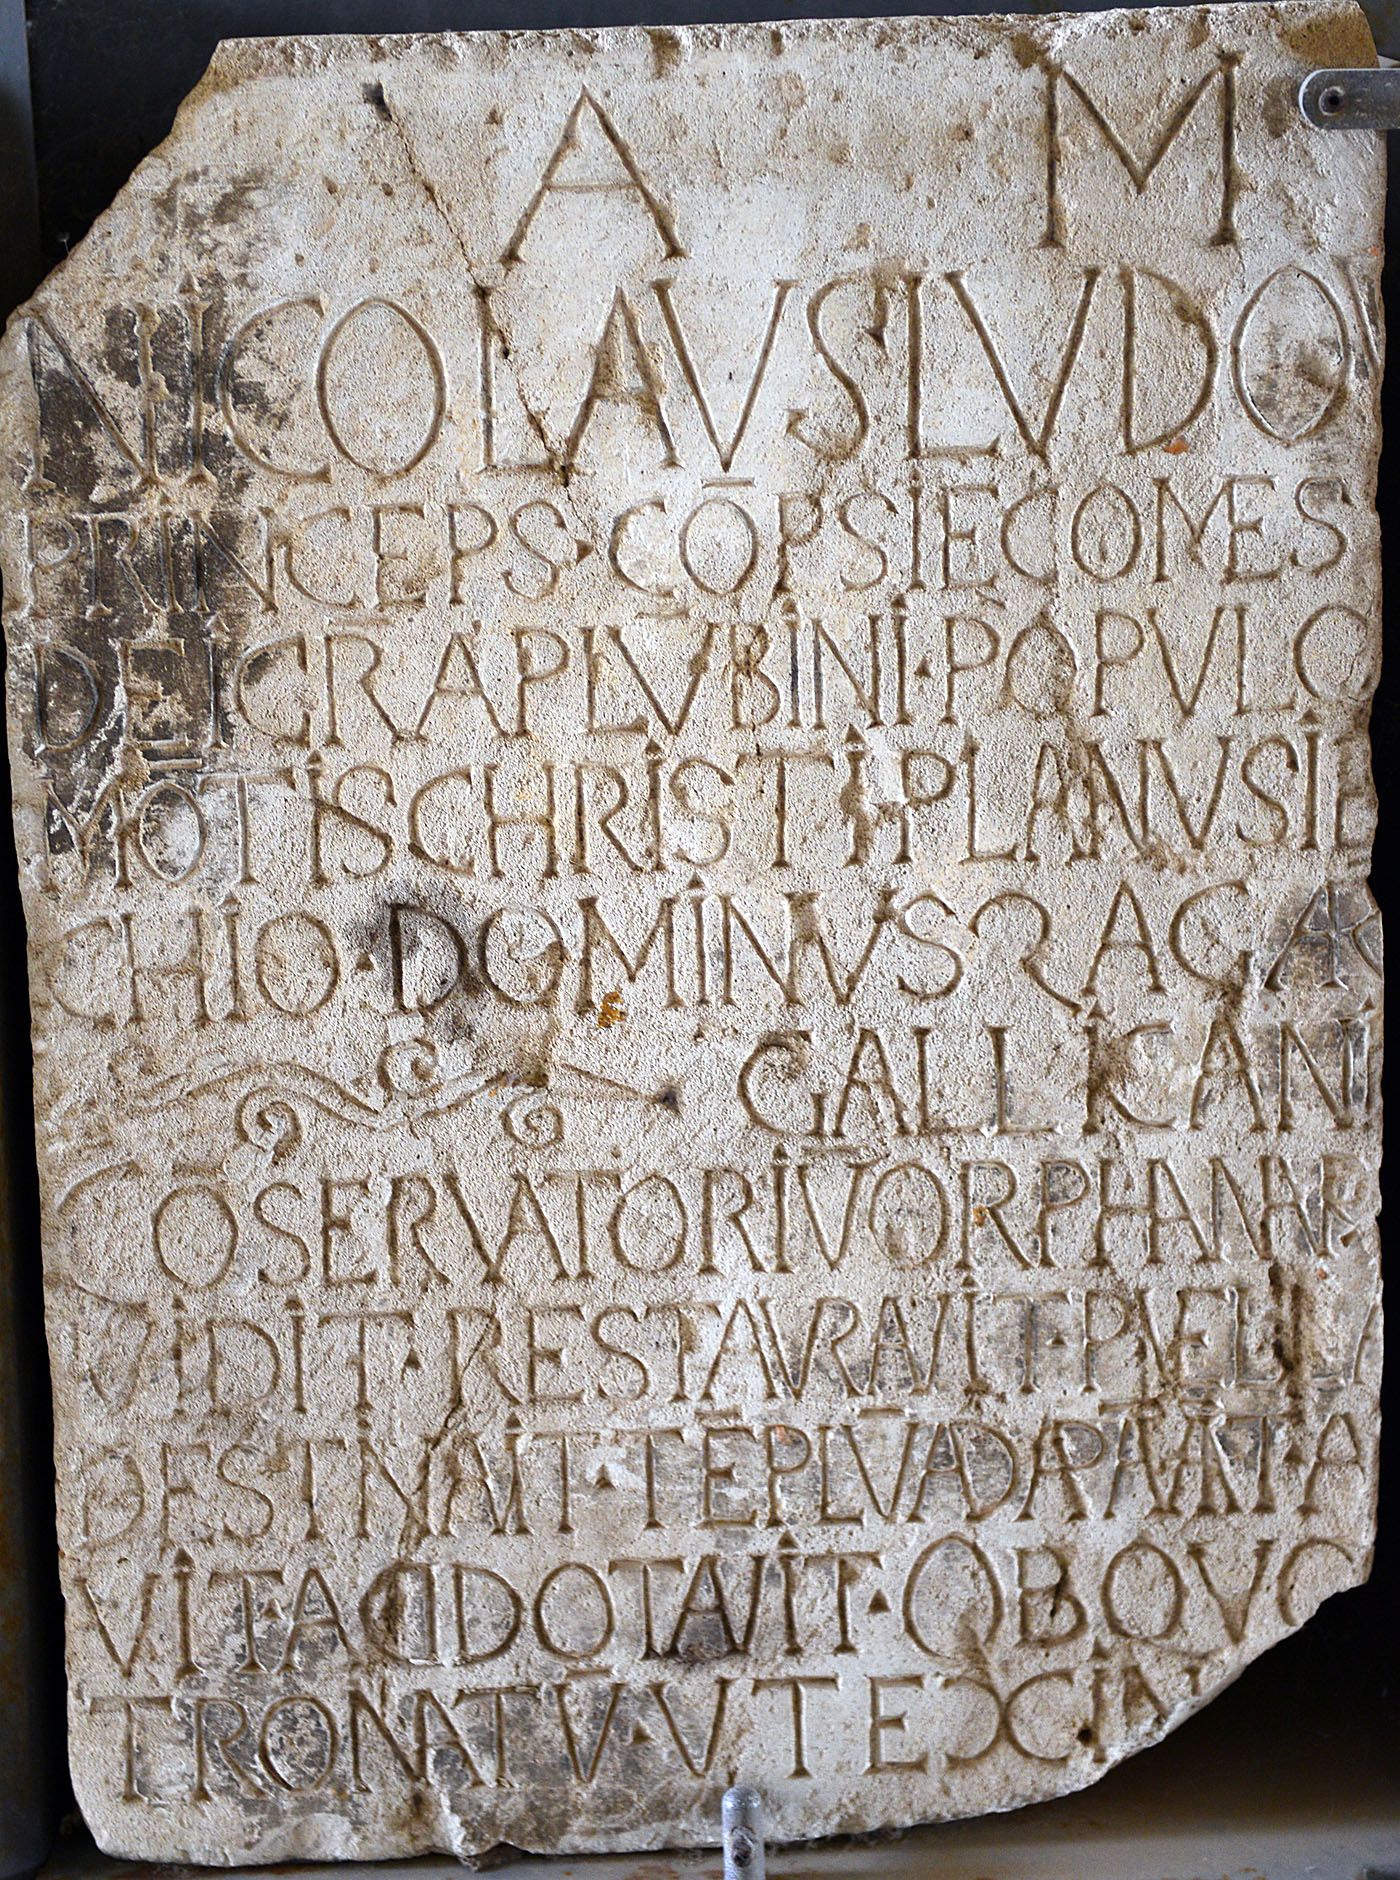 A M
NICOLAVS LVDOV
PRINCEPS · CŌPSIE COMES
DEI GR̄A PLVBINI · POPVLO
MŌTIS CHRISTI PLANVSIE
CHIO · DOMINVS RAC
GALLICANI
COSERVATORIV̄ ORPHANAR
VIDIT · RESTAVRAVIT · PVELLA
DESTINAVIT · TĒPLV̄ ADAPTAVIT · A
VIT · AC DOTAVIT · OB QVO
TRONATV̄ · VT EX